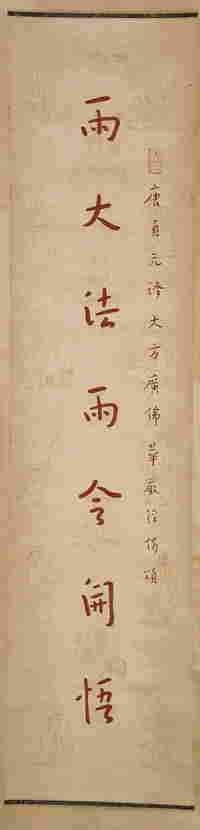 唐貞元譯大方廣佛華嚴經偈頌
雨大法雨令開悟